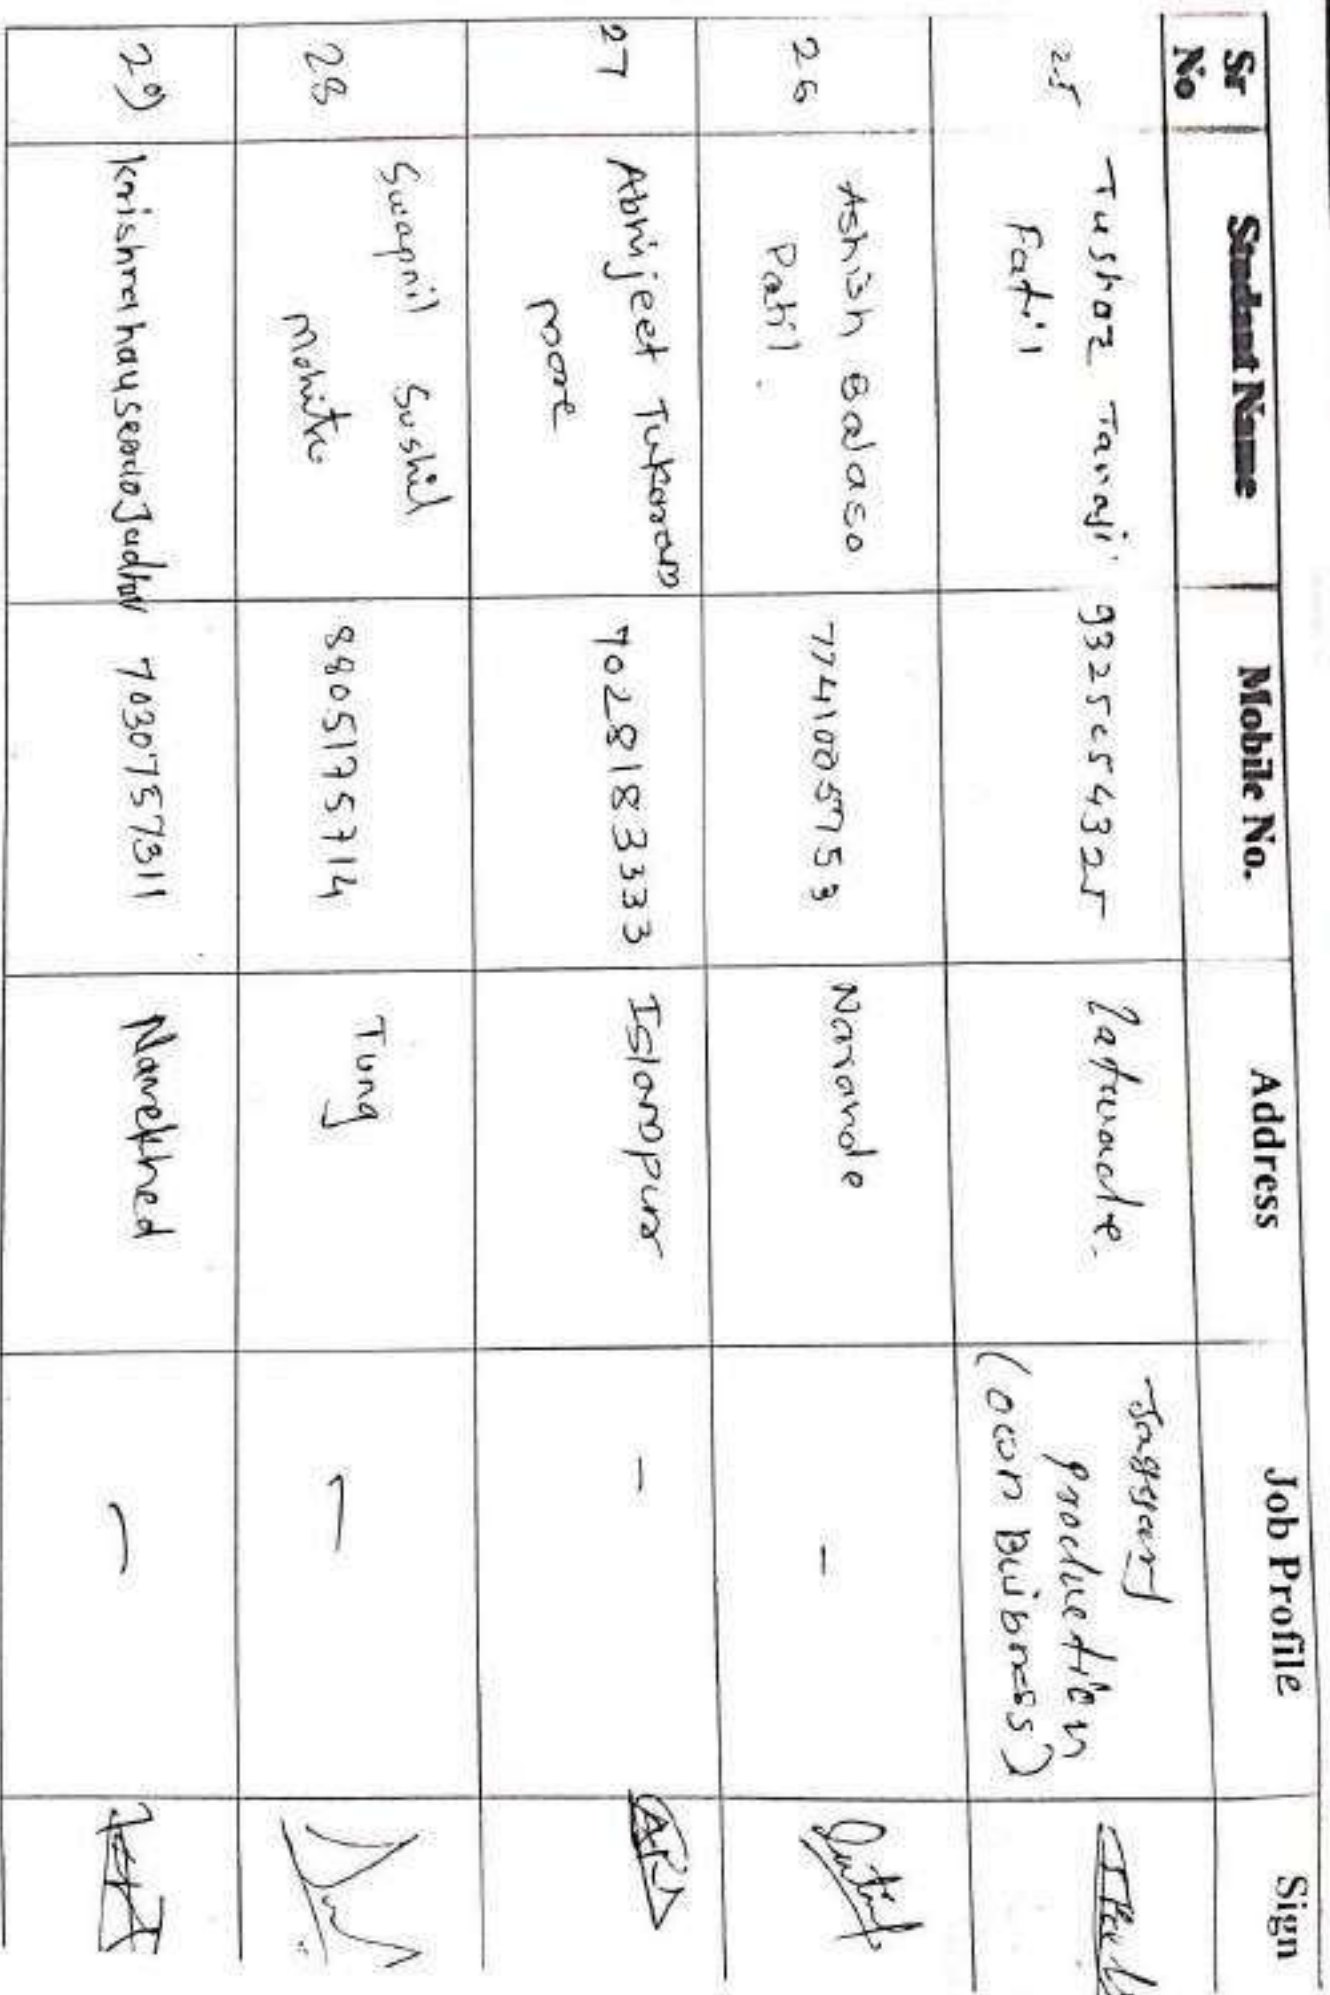 Sr No Student Name Mobile No. Address Job Profile Sign
25 Tushar Tanaji Patil 9325654325 Jaggery production (own Buisness)
26 Ashish Balaso Patil. 7741005753 Narande -
27 Abhijeet Tukaram more 7028183333 Islampur -
28 Swapnil Sushil Mohite 8805175714 Tung -
29 Jadhav 7030757311 Narekhed -